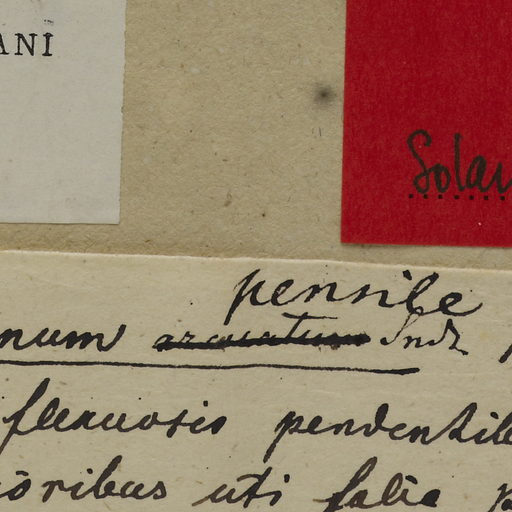 ANI
Solan
pensile
num arcuatum Sndt
flexuosis pendentib
ioribus uti folia p